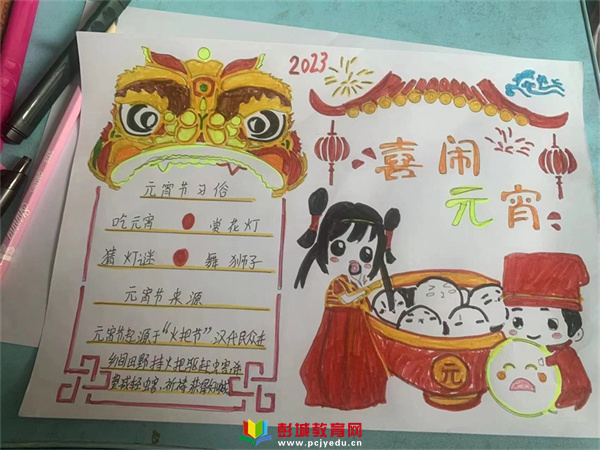 2023
喜闹
元宵
元宵节习俗
吃元宵 赏花灯
猜灯谜 舞狮子
元宵节来源
元宵节起源于“火把节”汉代民众在
乡间田野持火把驱赶虫
减轻虫害,祈祷获
元
彭城教育网
www.pcjyedu.cn